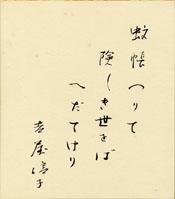 蚊帳つりて
険しき世をば
へだてけり
吉屋信子